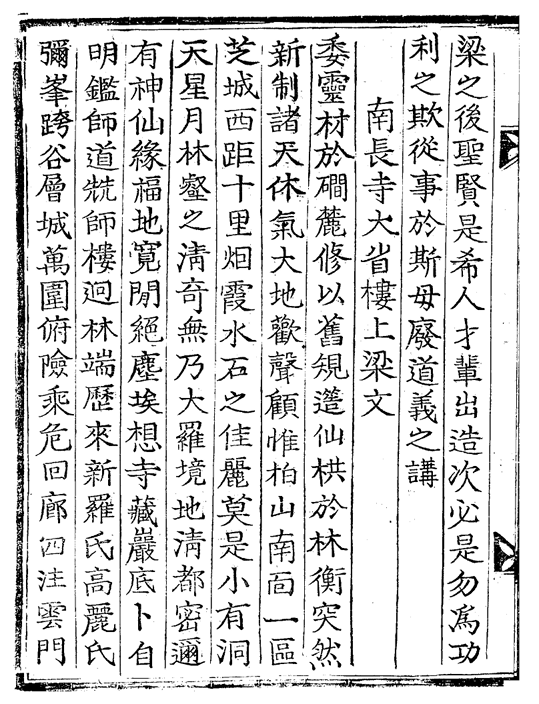 梁之後聖賢是希人才輩出造次必是勿爲功
利之欺從事於斯毋廢道義之講
南長寺大省樓上梁文
委靈材於磵麓修以舊規簉仙栱於林衡突然
新制諸天休氣大地歡聲顧惟柏山南面一區
芝城西距十里烟霞水石之佳麗莫是小有洞
天星月林壑之淸奇無乃大羅境地淸都密邇
有神仙緣福地寬閒絕塵埃想寺藏巖底卜自
明鑑師道兟師樓逈林端歷來新羅氏高麗氏
彌峯跨谷層城萬圍俯險乘危回廊四注雲門